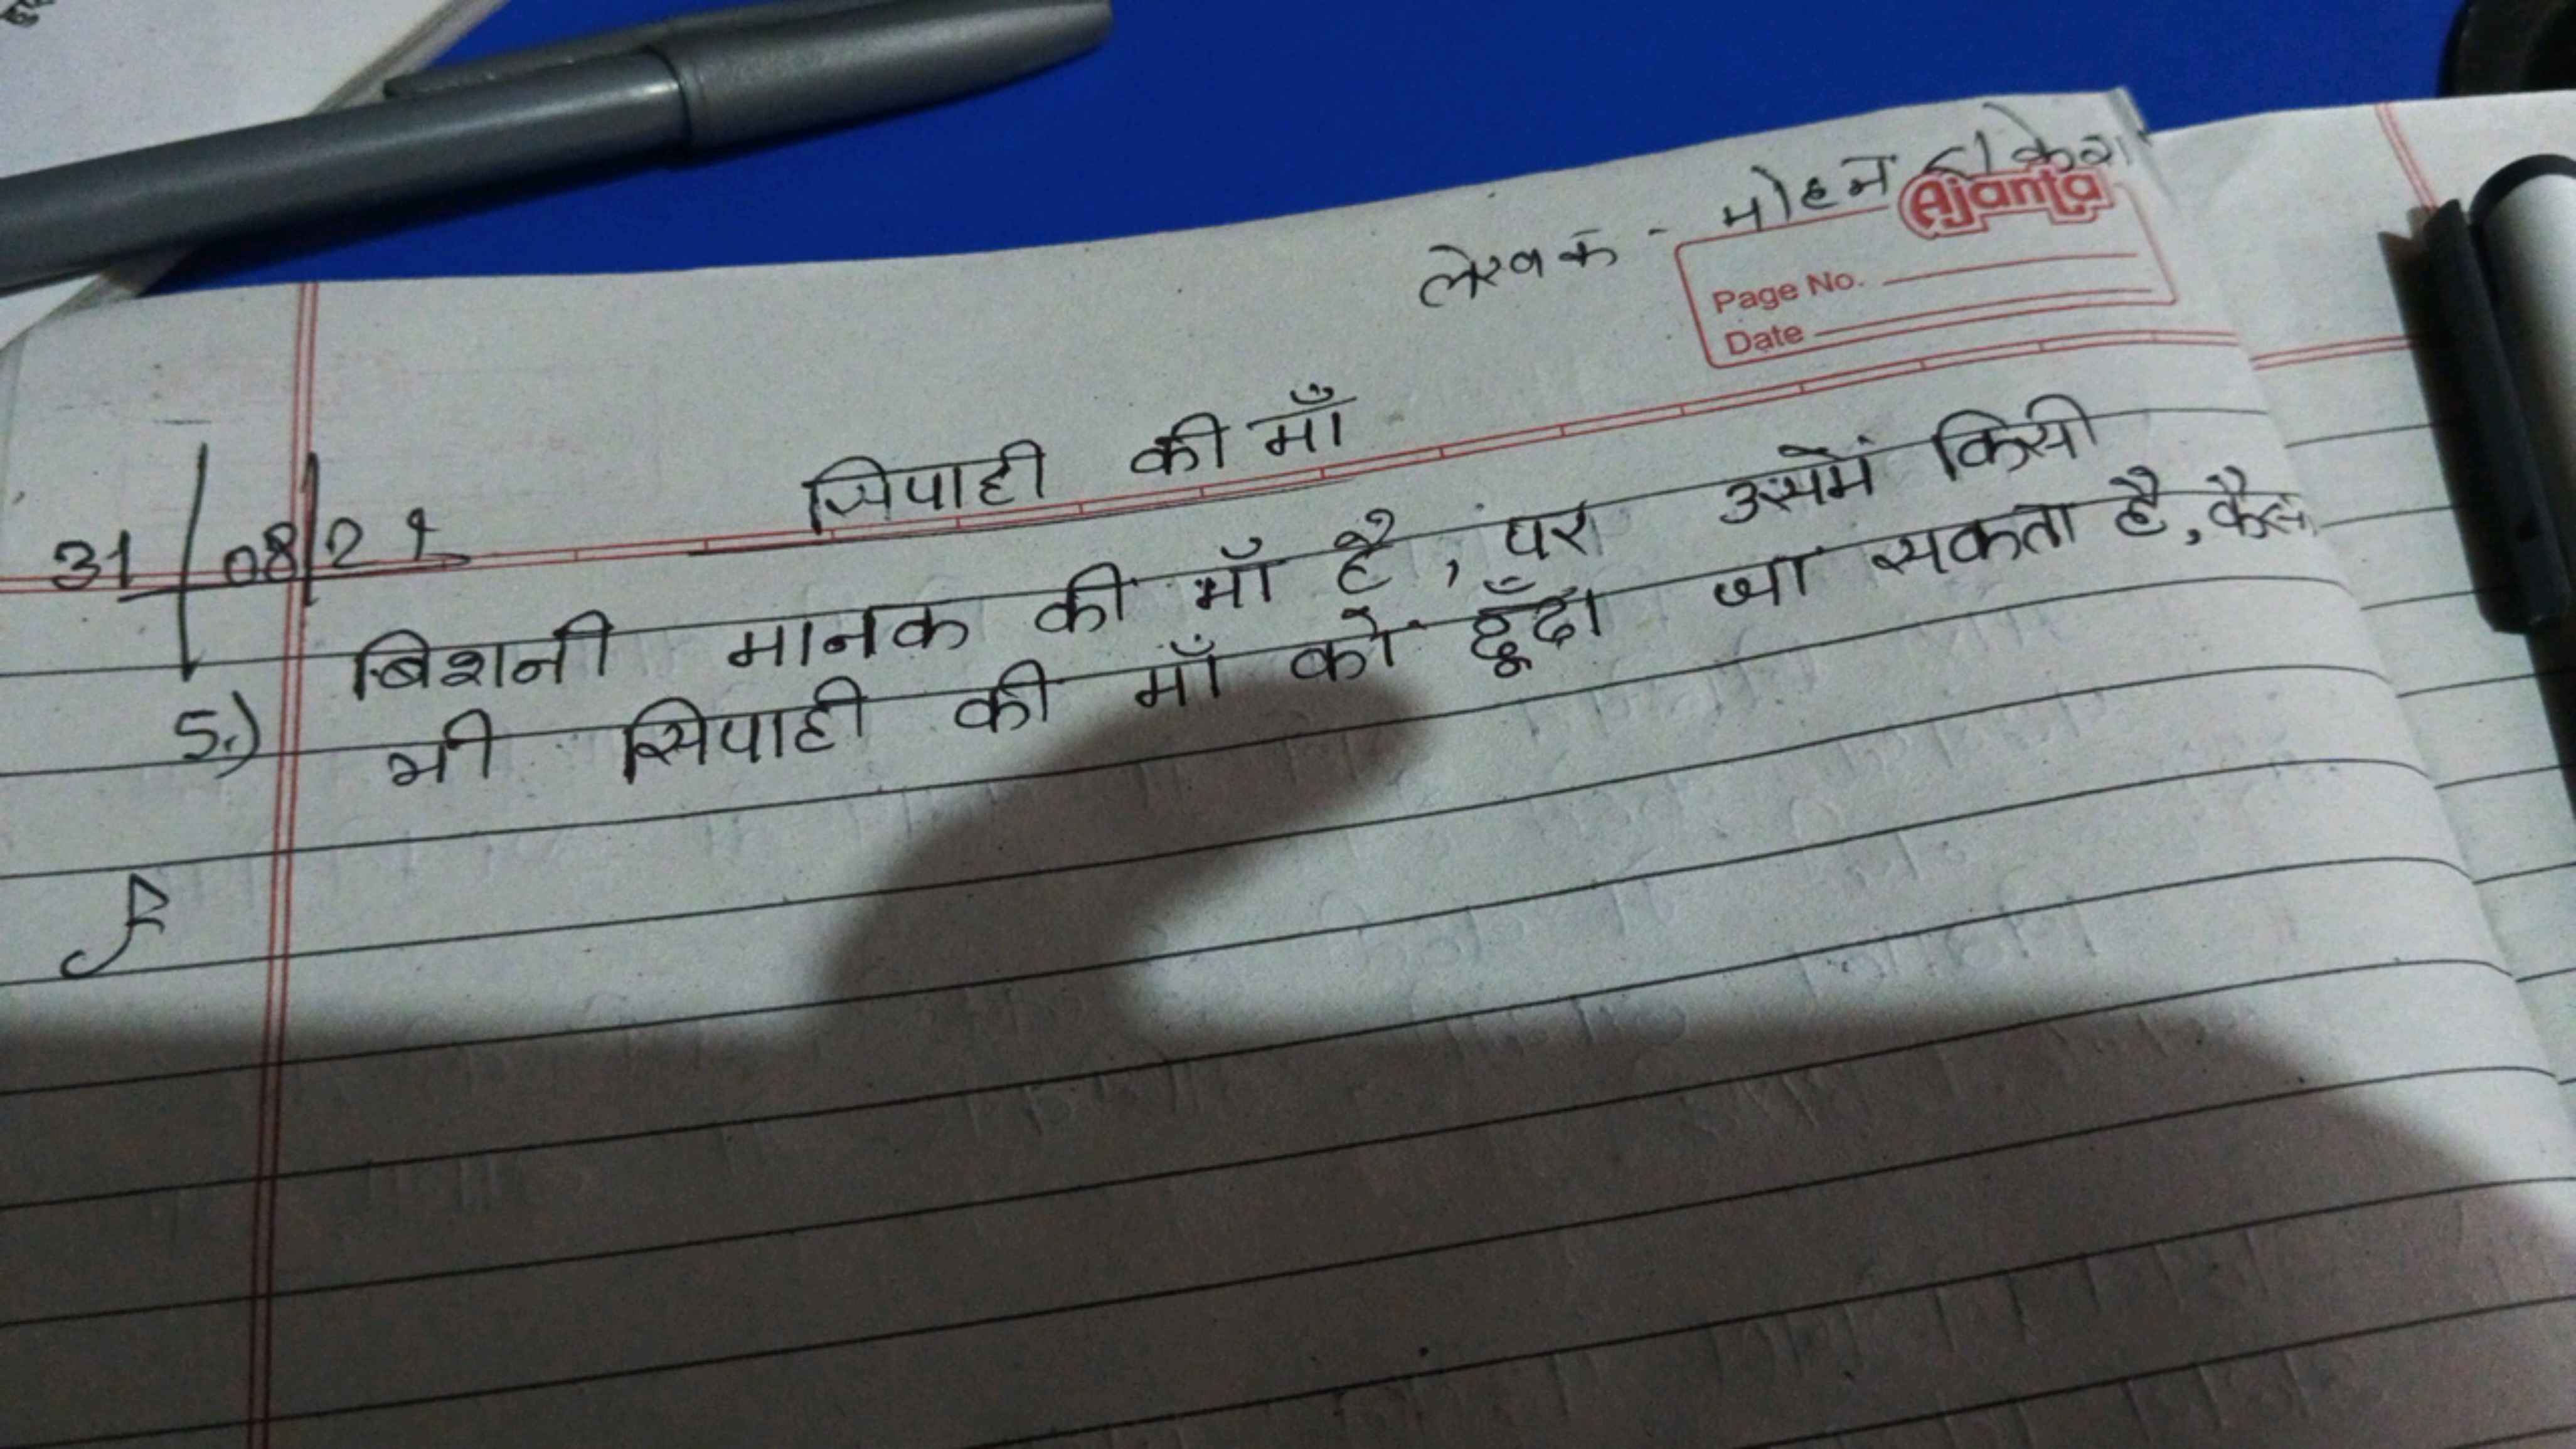 लेखक - मोहन राकेश
Ajanta
Page No.
Date
सिपाही की माँ
31/08/21
5.) बिशनी मानक की माँ है, पर उसमें किसी
भी सिपाही की माँ को ढूँढा जा सकता है, कैसे